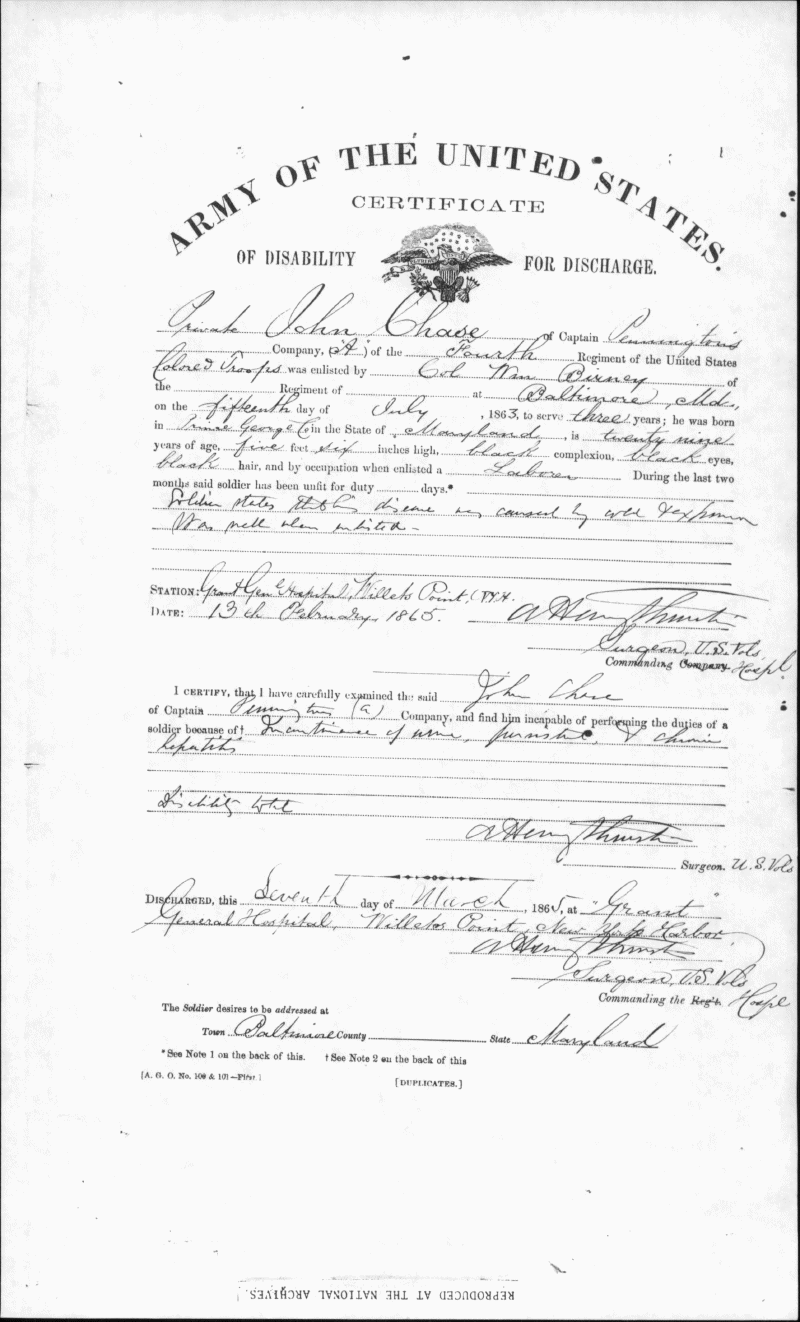 ARMY OF THE UNITED STATES.
CERTIFICATE
OF DISABILITY FOR DISCHARGE.
Private John Chase of Captain Pennington's
Company, ("A") of the Fourth Regiment of the United States
Colored Troops was enlisted by Col Wm Birney of
the Regiment of at Baltimore, Md.,
on the fifteenth day of July, 1863, to serve three years; he was born
in Prince George Co in the State of Maryland, is twenty nine
years of age, five feet six inches high, black complexion, black eyes,
black hair, and by occupation when enlisted a Laborer During the last two
months said soldier has been unfit for duty days.*
Soldier states that his disease was caused by cold & exposure
Was well when enlisted -
STATION: Grant Genl Hospital, Willets Point, N.Y.H.
DATE: 13th February, 1865. A Henry Thurston
Surgeon, U.S. Vols,
Commanding Company. Hospl.
I CERTIFY, that I have carefully examined the said John Chase
of Captain Pennington's (A) Company, and find him incapable of performing the duties of a
soldier because of† Incontinence of urine, & chronic
hepatitis
Disability total
A Henry Thurston
Surgeon. U.S. Vols
DISCHARGED, this Seventh day of March, 1865, at "Grant"
General Hospital, Willets Point, New York Harbor
A Henry Thurston
Surgeon, U.S. Vols
Commanding the Reg't. Hospl
The Soldier desires to be addressed at
Town Baltimore County State Maryland
*See Note 1 on the back of this. †See Note 2 on the back of this
[A. G. O. No. 100 & 101—First]
[DUPLICATES.]
REPRODUCED AT THE NATIONAL ARCHIVES.